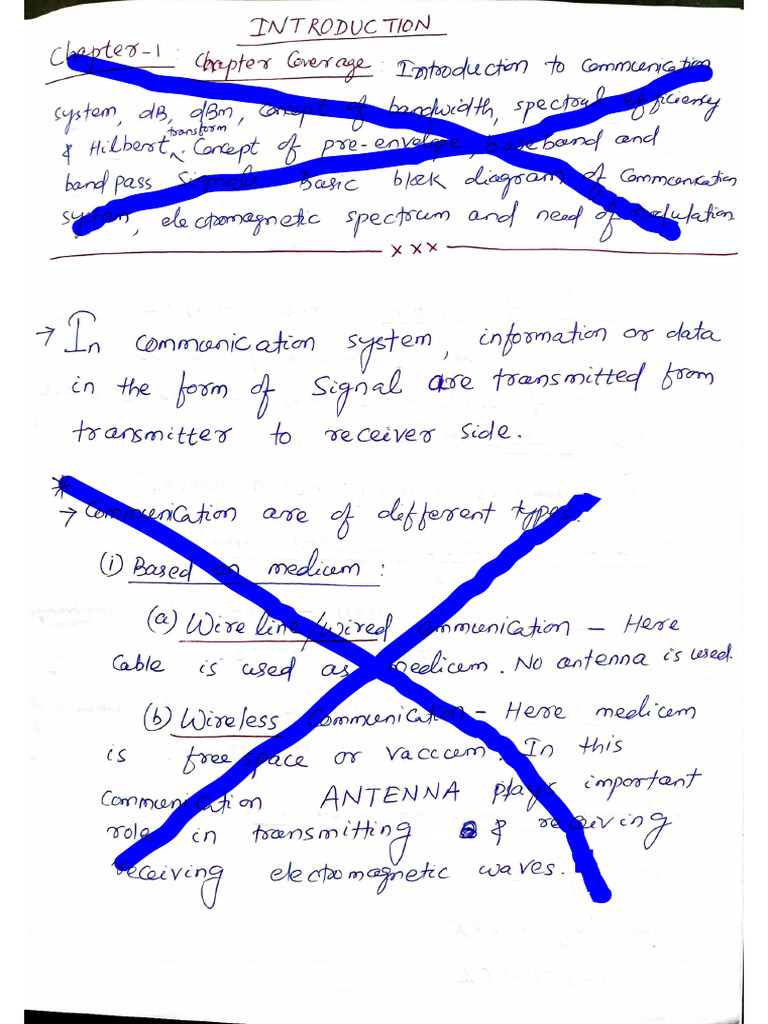 INTRODUCTION
Chapter-1: Chapter Coverage: Introduction to Communication
system, dB, dBm, Concept of bandwidth, spectral efficiency
transform
& Hilbert. Concept of pre-envelope, baseband and
bandpass Signals. Basic block diagram of Communication
system, electromagnetic spectrum and need of modulation
x x x
→ In communication system, information or data
in the form of Signal are transmitted from
transmitter to receiver side.
*
→ Communication are of different types.
(i) Based on medium:
(a) Wire line/wired communication – Here
Cable is used as medium. No antenna is used.
(b) Wireless Communication – Here medium
is free space or vaccum. In this
Communication ANTENNA plays important
role in transmitting & receiving
receiving electromagnetic waves.